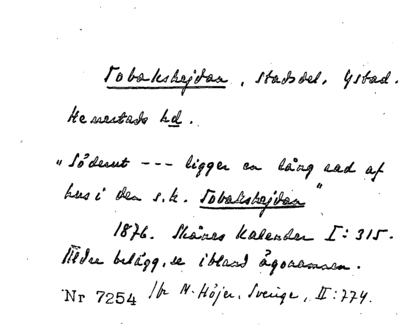 Tobakshejdan, stadsdel, Ystad.
Hemestads hd.
"Söderut --- ligger en lång rad af
hus i den s.k. Tobakshejdan"
1876. Skånes Kalender I: 315.
Äldre belägg, se ibland ägonamnen.
Nr 7254 /br N. Höjer, Sverige, II: 774.